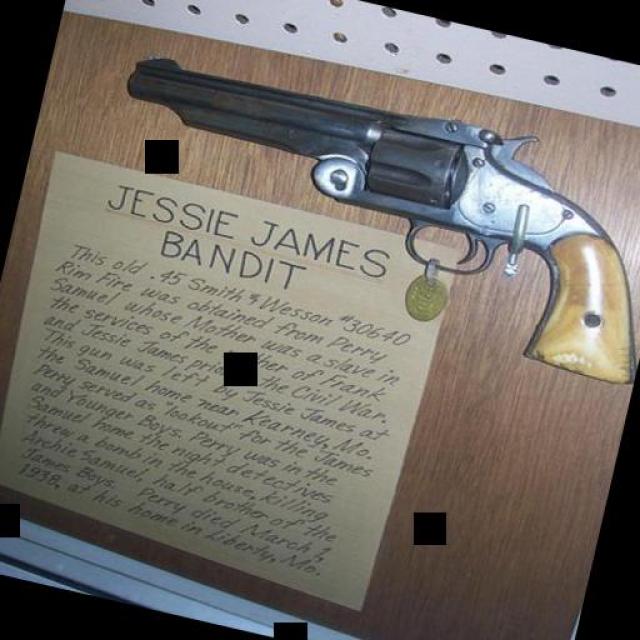 JESSIE JAMES
BANDIT
This old .45 Smith & Wesson #30640
Rim Fire was obtained from Perry
Samuel whose Mother was a slave in
the services of the of Frank
and Jessie James the Civil War.
This gun was left by Jessie James at
the Samuel home near Kearney, Mo.
Perry served as "lookout" for the James
and Younger Boys. Perry was in the
Samuel home the night detectives
threw a bomb in the house, killing
Archie Samuel, half brother of the
James Boys. Perry died March 1,
1938, at his home in Liberty, Mo.